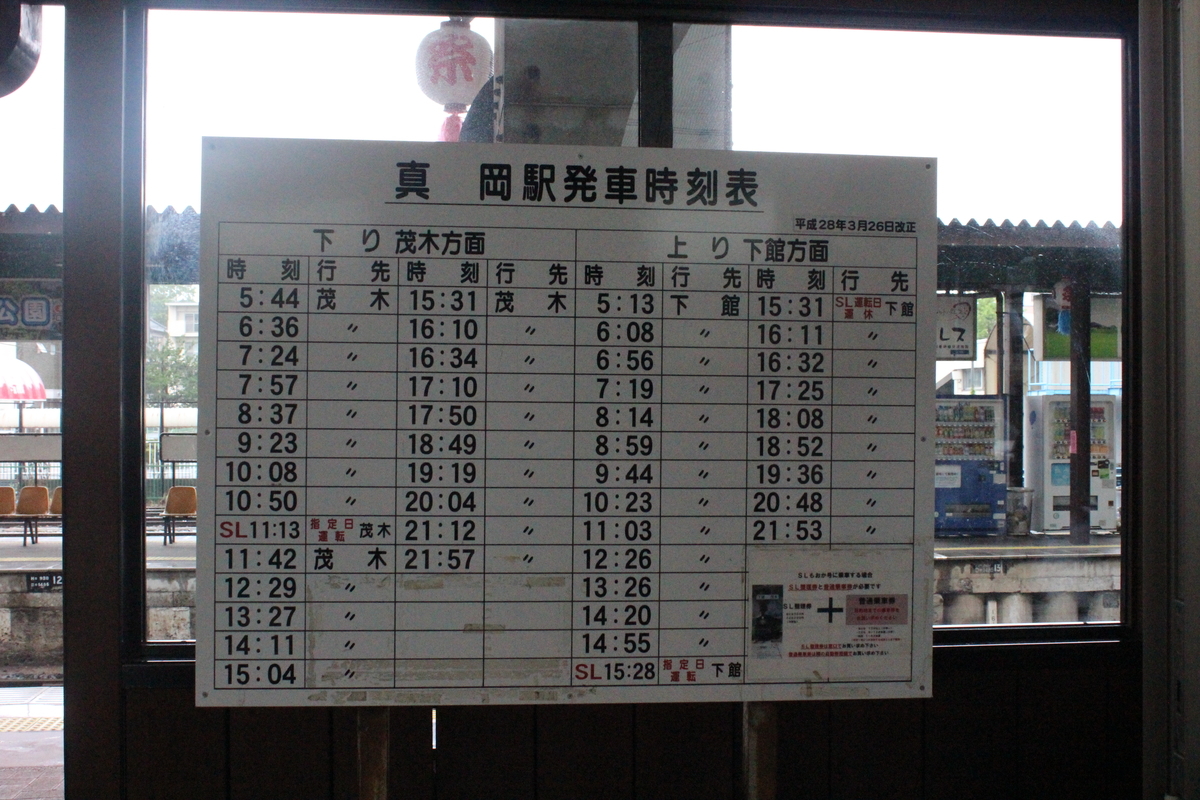 祭
真 岡駅発車時刻表
平成28年3月26日改正
下り 茂木方面 上り 下館方面
時刻 行先 時刻 行先 時刻 行先 時刻 行先
5:44 茂木 15:31 茂木 5:13 下館 15:31 SL運転日運休 下館
6:36 〃 16:10 〃 6:08 〃 16:11 〃
7:24 〃 16:34 〃 6:56 〃 16:32 〃
7:57 〃 17:10 〃 7:19 〃 17:25 〃
8:37 〃 17:50 〃 8:14 〃 18:08 〃
9:23 〃 18:49 〃 8:59 〃 18:52 〃
10:08 〃 19:19 〃 9:44 〃 19:36 〃
10:50 〃 20:04 〃 10:23 〃 20:48 〃
SL11:13 指定日運転 茂木 21:12 〃 11:03 〃 21:53 〃
11:42 茂木 21:57 〃 12:26 〃
12:29 〃 13:26 〃
13:27 〃 14:20 〃
14:11 〃 14:55 〃
15:04 〃 SL15:28 指定日運転 下館
SLもおか号に乗車する場合
SL整理券と普通乗車券が必要です
SL整理券 + 普通乗車券
公園
レス
12
15